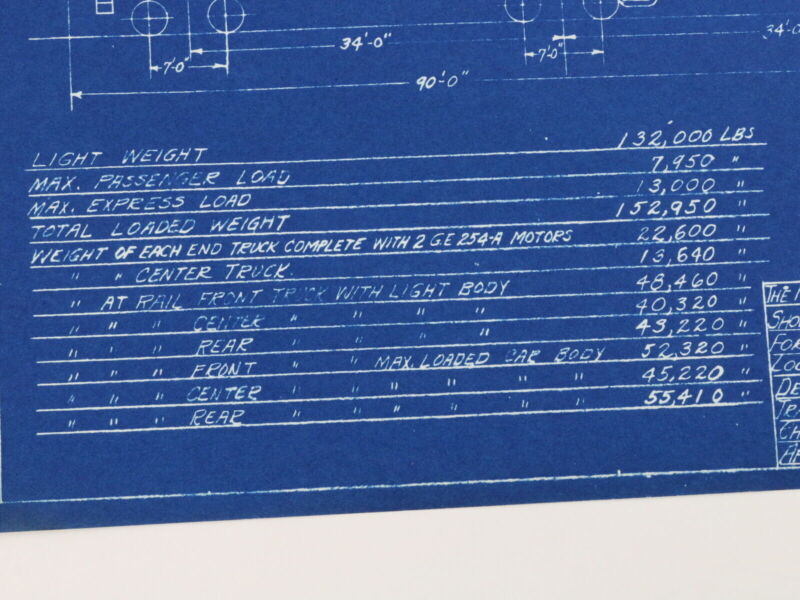 34'-0"
34'-0
7'-0"
7'-0"
90'-0"
LIGHT WEIGHT 132,000 LBS
MAX. PASSENGER LOAD 7,950 "
MAX. EXPRESS LOAD 13,000 "
TOTAL LOADED WEIGHT 152,950 "
WEIGHT OF EACH END TRUCK COMPLETE WITH 2 GE 254-A MOTORS 22,600 "
" " CENTER TRUCK " 13,640 "
" AT RAIL FRONT TRUCK WITH LIGHT BODY 48,460 "
" " " CENTER " " " " 40,320 "
" " " REAR " " " " 43,220 "
" " " FRONT " " MAX. LOADED CAR BODY 52,320 "
" " " CENTER " " " " " " 45,220 "
" " " REAR " " " " " " 55,410 "
THE
SHO
FOR
LOC
DE
TR
CH
AP